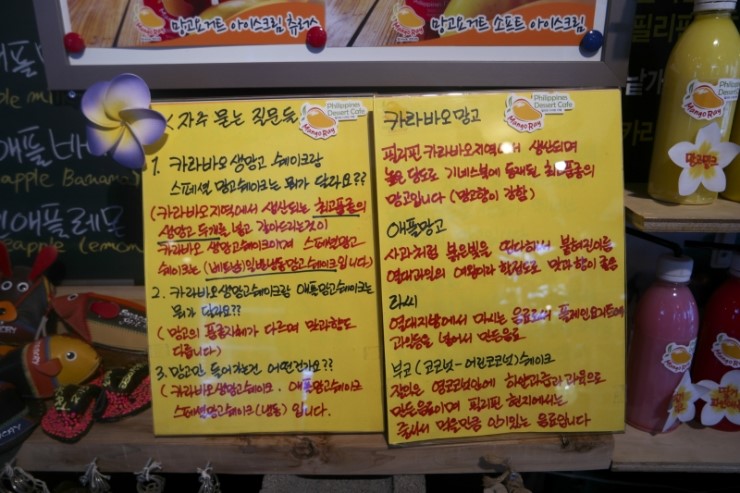 망고요거트 아이스크림 츄러스
망고요거트 소프트 아이스크림
MangoRay
Philippines
Dessert Cafe
< 자주 묻는 질문들
1. 카라바오 생망고 쉐이크랑
스페셜 망고쉐이크는 뭐가 달라요??
(카라바오지역에서 생산되는 최고품종의
생망고 두개를 넣고 갈아드리는것이
카라바오 생망고쉐이크이며 스페셜망고
쉐이크는 (베트남)일반냉동망고쉐이크입니다)
2. 카라바오생망고쉐이크랑 애플망고쉐이크는
뭐가 달라요??
( 망고의 품종자체가 다르며 맛과향도
다릅니다)
3. 망고만 들어가는건 어떤건가요??
( 카라바오생망고쉐이크. 애플망고쉐이크
스페셜망고쉐이크(냉동) 입니다.
Philippines
Dessert Cafe
MangoRay
카라바오망고
필리핀 카라바오지역에서 생산되며
높은 당도로 기네스북에 등재된 최고품종의
망고입니다 (망고향이 강함)
애플망고
사과처럼 붉은빛을 띤다하여 붙혀진이름
열대과일의 여왕이라 할정도로 맛과 향이 좋음
라씨
열대지방에서 마시는 음료로써 플레인요거트에
과일등을 넣어서 만든음료
부코 (코코넛-어린코코넛)쉐이크
장민은 영코코넛안에 하얀과즙과 과육으로
만든음료이며 필리핀 현지에서는
줄서서 먹을만큼 인기있는 음료입니다
애플바
apple Banana
애플레몬
eapple (lemon
MangoRay